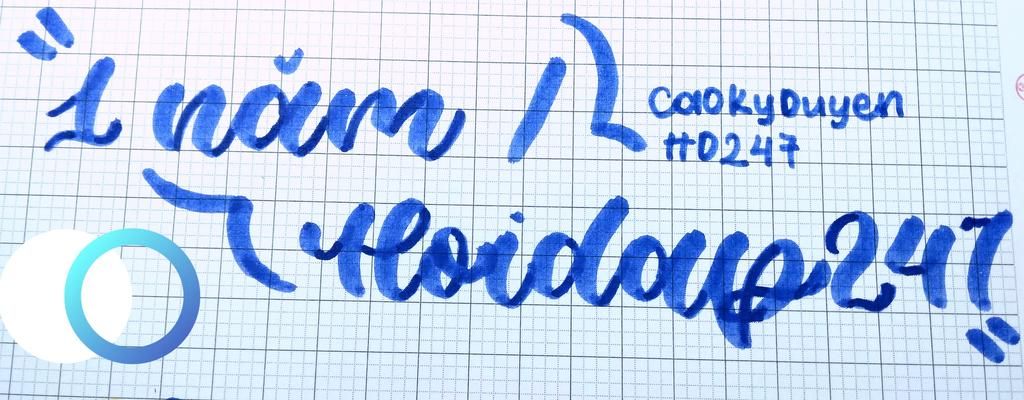 "1 năm
caokyDuyen
HD247
Hoidap247"